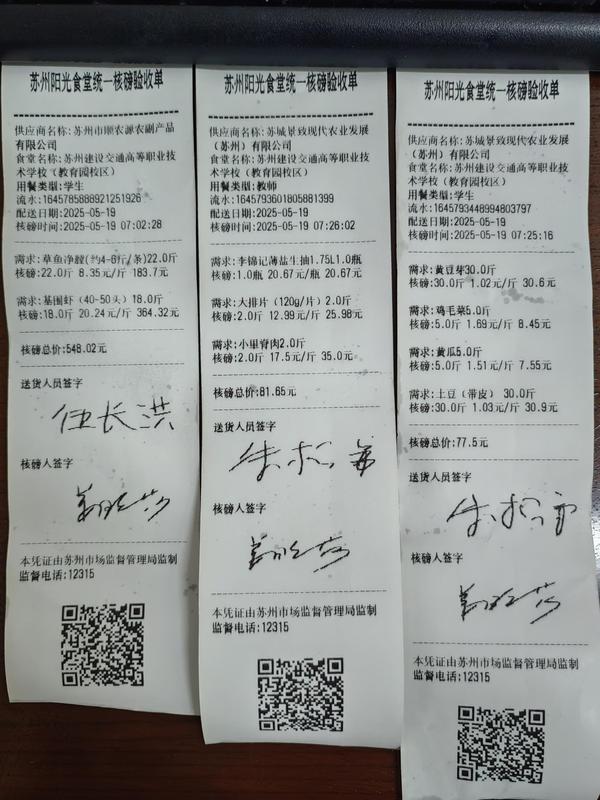 苏州阳光食堂统一核磅验收单
供应商名称:苏州市顺农源农副产品
有限公司
食堂名称:苏州建设交通高等职业技
术学校(教育园校区)
用餐类型:学生
流水:1645785888921251926
配送日期:2025-05-19
核磅时间:2025-05-19 07:02:28
需求:草鱼净膛(约4-6斤/条)22.0斤
核磅:22.0斤 8.35元/斤 183.7元
需求:基围虾(40-50头)18.0斤
核磅:18.0斤 20.24元/斤 364.32元
核磅总价:548.02元
送货人员签字
伍长洪
核磅人签字
本凭证由苏州市场监督管理局监制
监督电话:12315
苏州阳光食堂统一核磅验收单
供应商名称:苏城景致现代农业发展
(苏州)有限公司
食堂名称:苏州建设交通高等职业技
术学校(教育园校区)
用餐类型:教师
流水:1645793601805881399
配送日期:2025-05-19
核磅时间:2025-05-19 07:26:02
需求:李锦记薄盐生抽1.75L1.0瓶
核磅:1.0瓶 20.67元/瓶 20.67元
需求:大排片(120g/片)2.0斤
核磅:2.0斤 12.99元/斤 25.98元
需求:小里脊肉2.0斤
核磅:2.0斤 17.5元/斤 35.0元
核磅总价:81.65元
送货人员签字
核磅人签字
本凭证由苏州市场监督管理局监制
监督电话:12315
苏州阳光食堂统一核磅验收单
供应商名称:苏城景致现代农业发展
(苏州)有限公司
食堂名称:苏州建设交通高等职业技
术学校(教育园校区)
用餐类型:学生
流水:1645793448994803797
配送日期:2025-05-19
核磅时间:2025-05-19 07:25:16
需求:黄豆芽30.0斤
核磅:30.0斤 1.02元/斤 30.6元
需求:鸡毛菜5.0斤
核磅:5.0斤 1.69元/斤 8.45元
需求:黄瓜5.0斤
核磅:5.0斤 1.51元/斤 7.55元
需求:土豆(带皮) 30.0斤
核磅:30.0斤 1.03元/斤 30.9元
核磅总价:77.5元
送货人员签字
核磅人签字
本凭证由苏州市场监督管理局监制
监督电话:12315